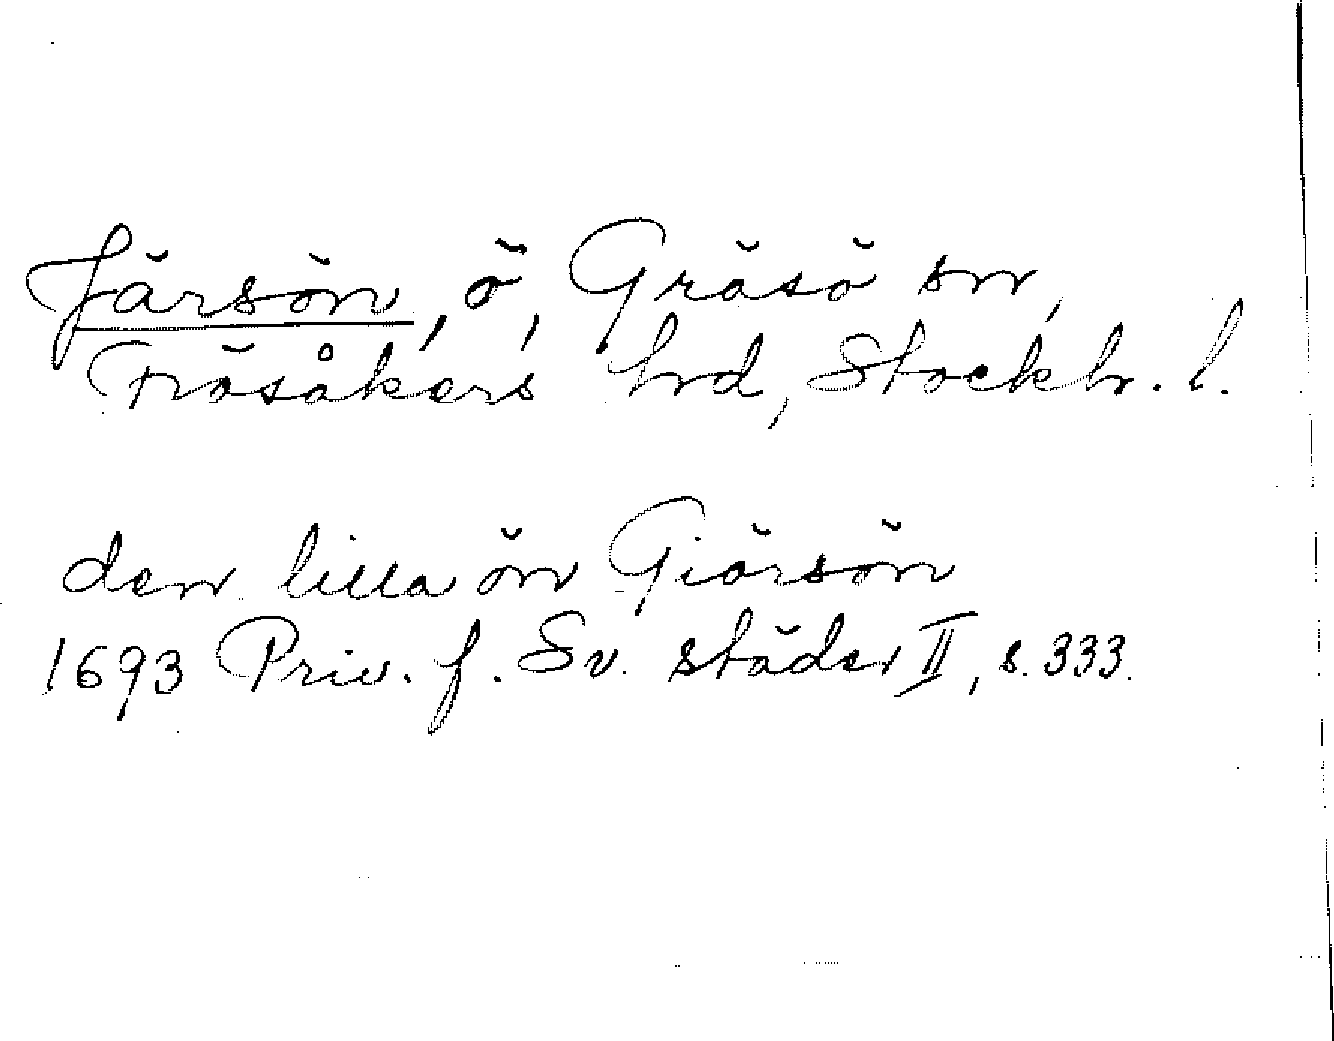 Järsön, ö, Gräsö sn,
Frösåkers hrd, Stockh. l.
den lilla ön Giärsön
1693 Priv. f. Sv. städer II, s. 333.